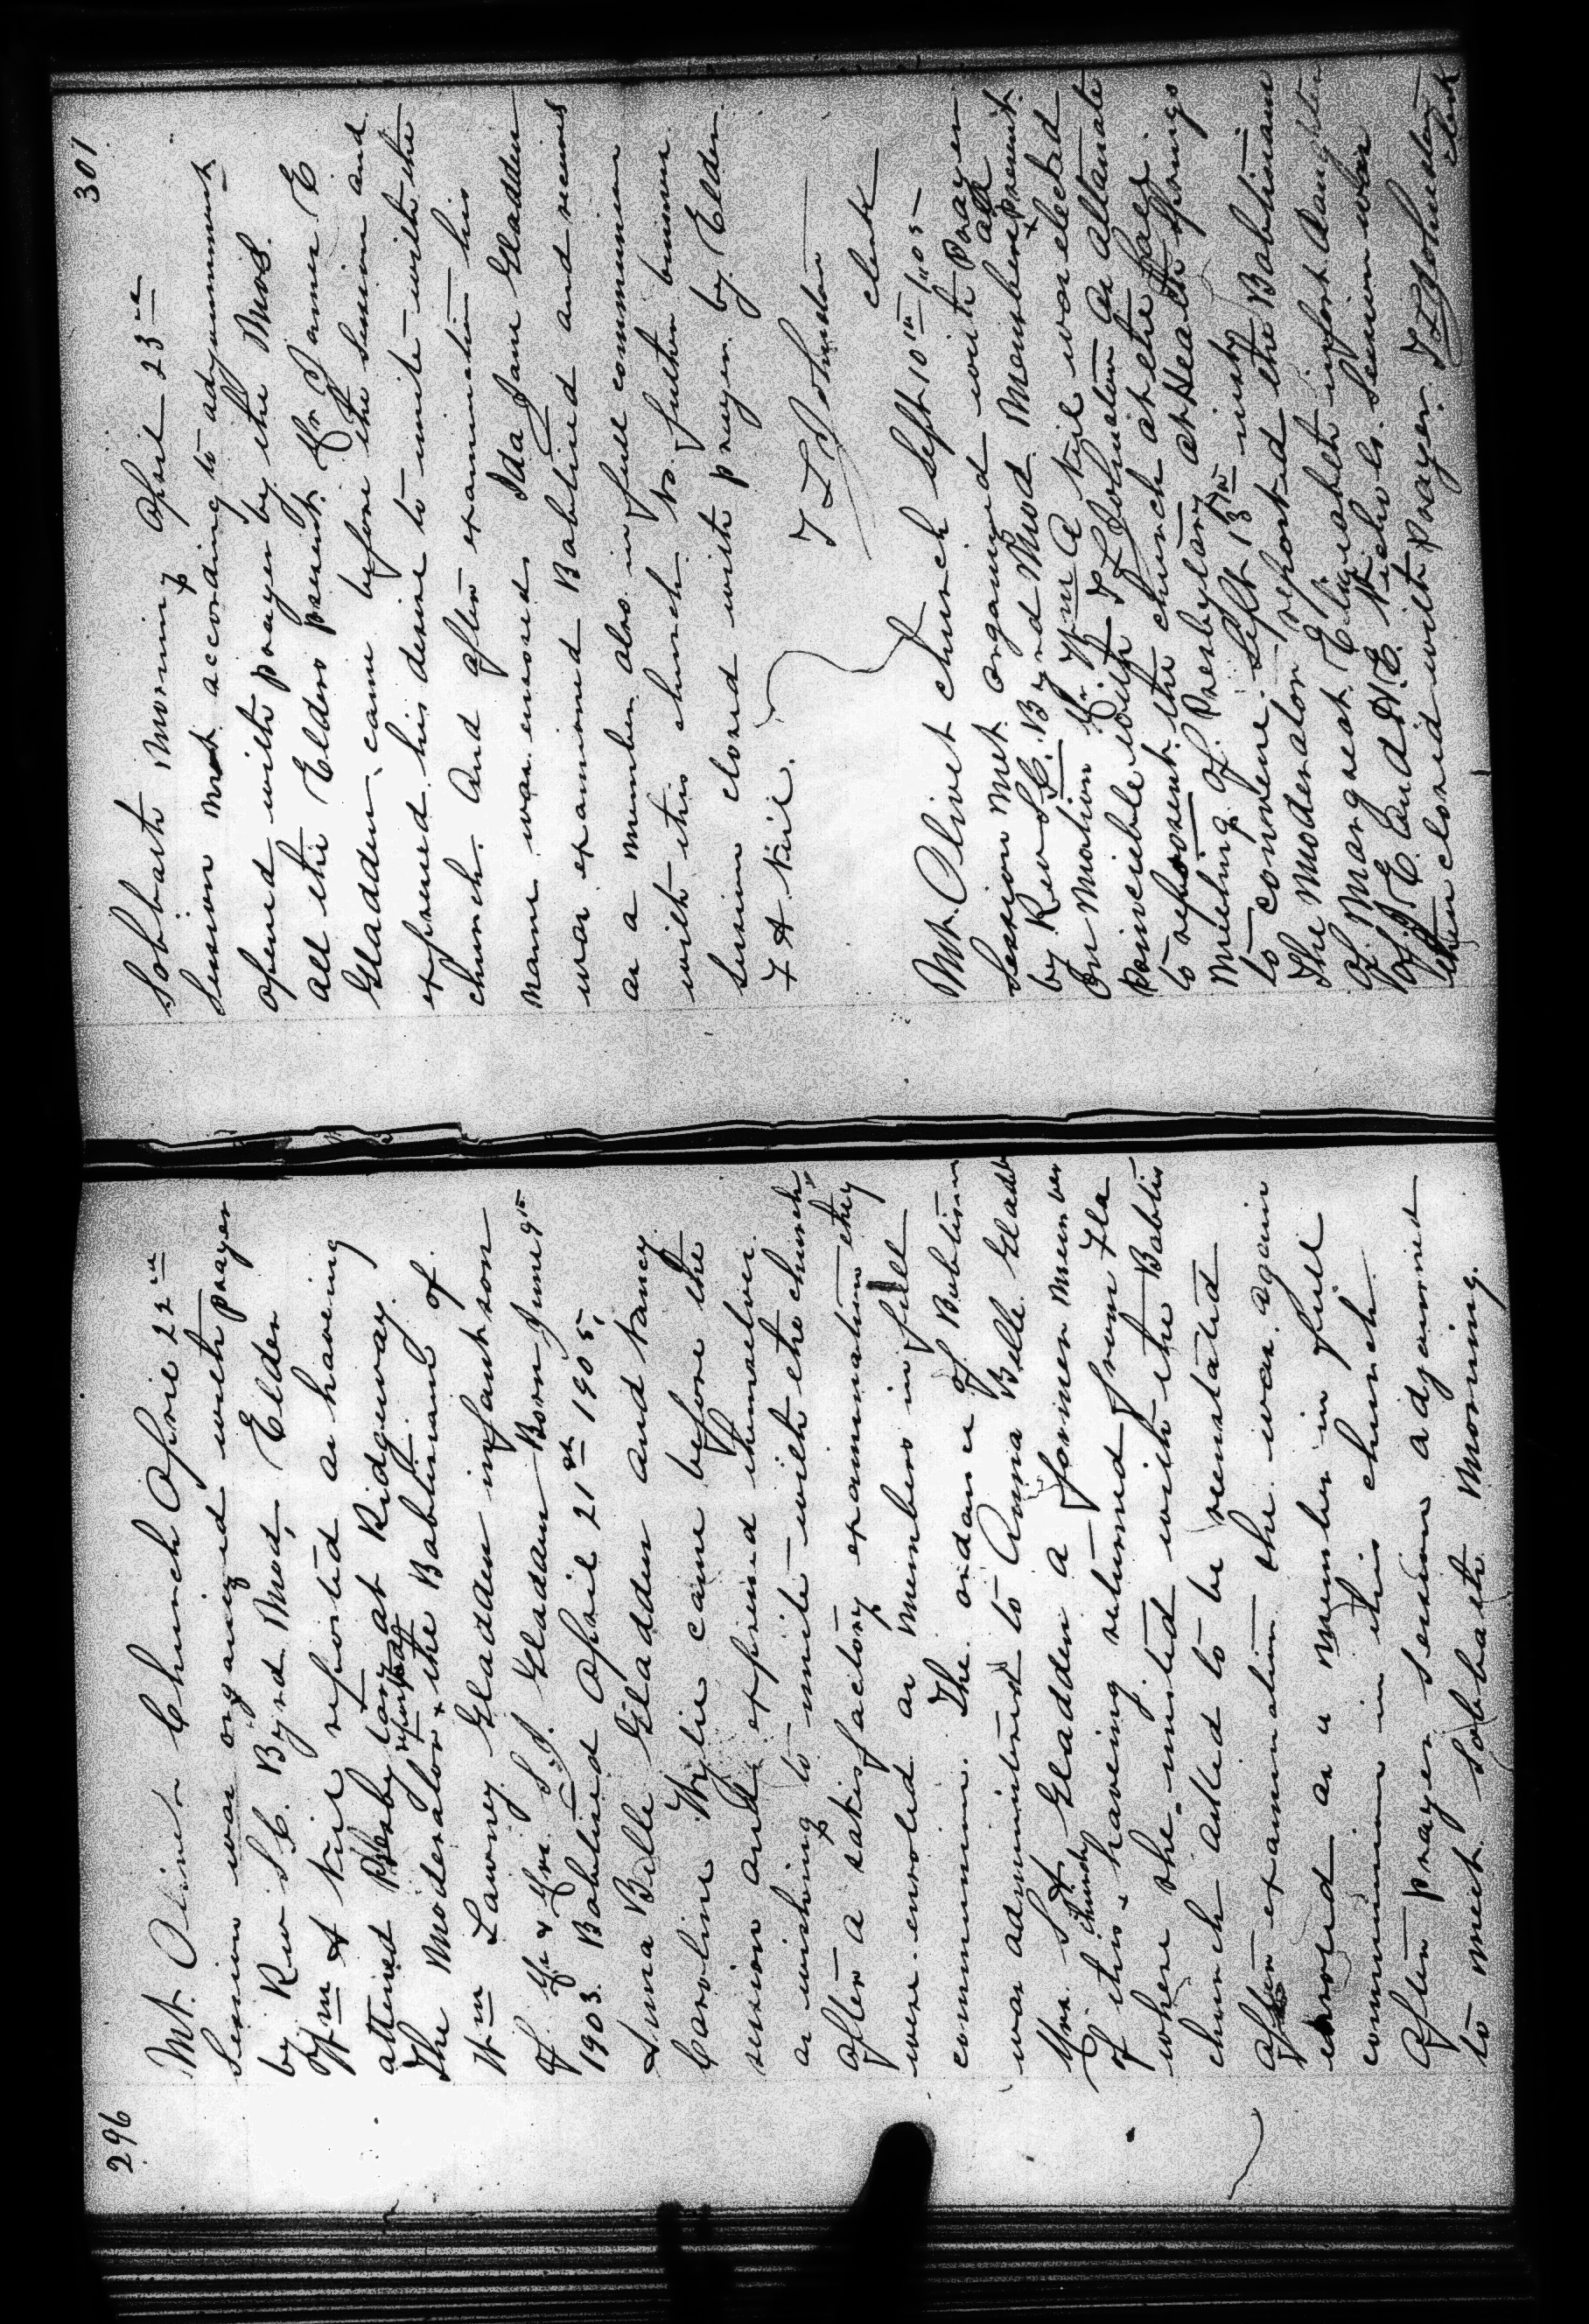 296
Mt. Olivet Church April 22nd
Session was organized with prayer
by Rev S.C. Byrd Mod, Elder
Wm A Neil reported as haveing
attined Presbytary at Ridgeway.
The Moderator x reported the Babtizmand of
Wm Lawney Gladden infant son
of Mr & Mrs. S.J. Gladden Born June 9th
1903. Babtized April 21st 1905,
Anna Bille Gladden and Nancy
Caroline Wylie came before the
session and expressed themselves
as wishing to unite with the church
after a satisfactory examination they
were enrolled as members in full
communion. The ordance of Babtism
was administered to Anna Bille Gladden
Mrs. S A Gladden a former member
of this x church haveing returned from Fla
where she united with the Babtis
church asked to be reenstated
After examination she was again
enrold as a member in full
communion in this church
After prayer session adjourned
to meet Sobbath Morning.
301
Sobbath Morning April 23rd
Session met according to adjournment
opened with prayer by the Mod.
All the Elders present. Mr James E
Gladden came before the session and
expressed his desire to unite with the
church. And after examination his
name was enrosed. Ida Jane Gladden
was examined Babtized and received
as a member also in full communion
with this church. No further business
session closed with prayer by Elder
T A Neil.
T L Johnston
clerk
Mt. Olivet church Sept 10th 1905
Session met organized with prayer
by Rev S.C. Byrd Mod Members all x present.
On Motion Mr Wm A Neil was elected
Principle with T L Johnston as altanate
to represent the church at the fall
meeting of Presbytary at Heath Springs
to convene Sept 13th inst
The Moderator reported the Babtizmand
of Margreat Elizabeth infant daughter
of J E and N.E. Nichols. Session was
then closed with prayer. T L Johnston
clerk